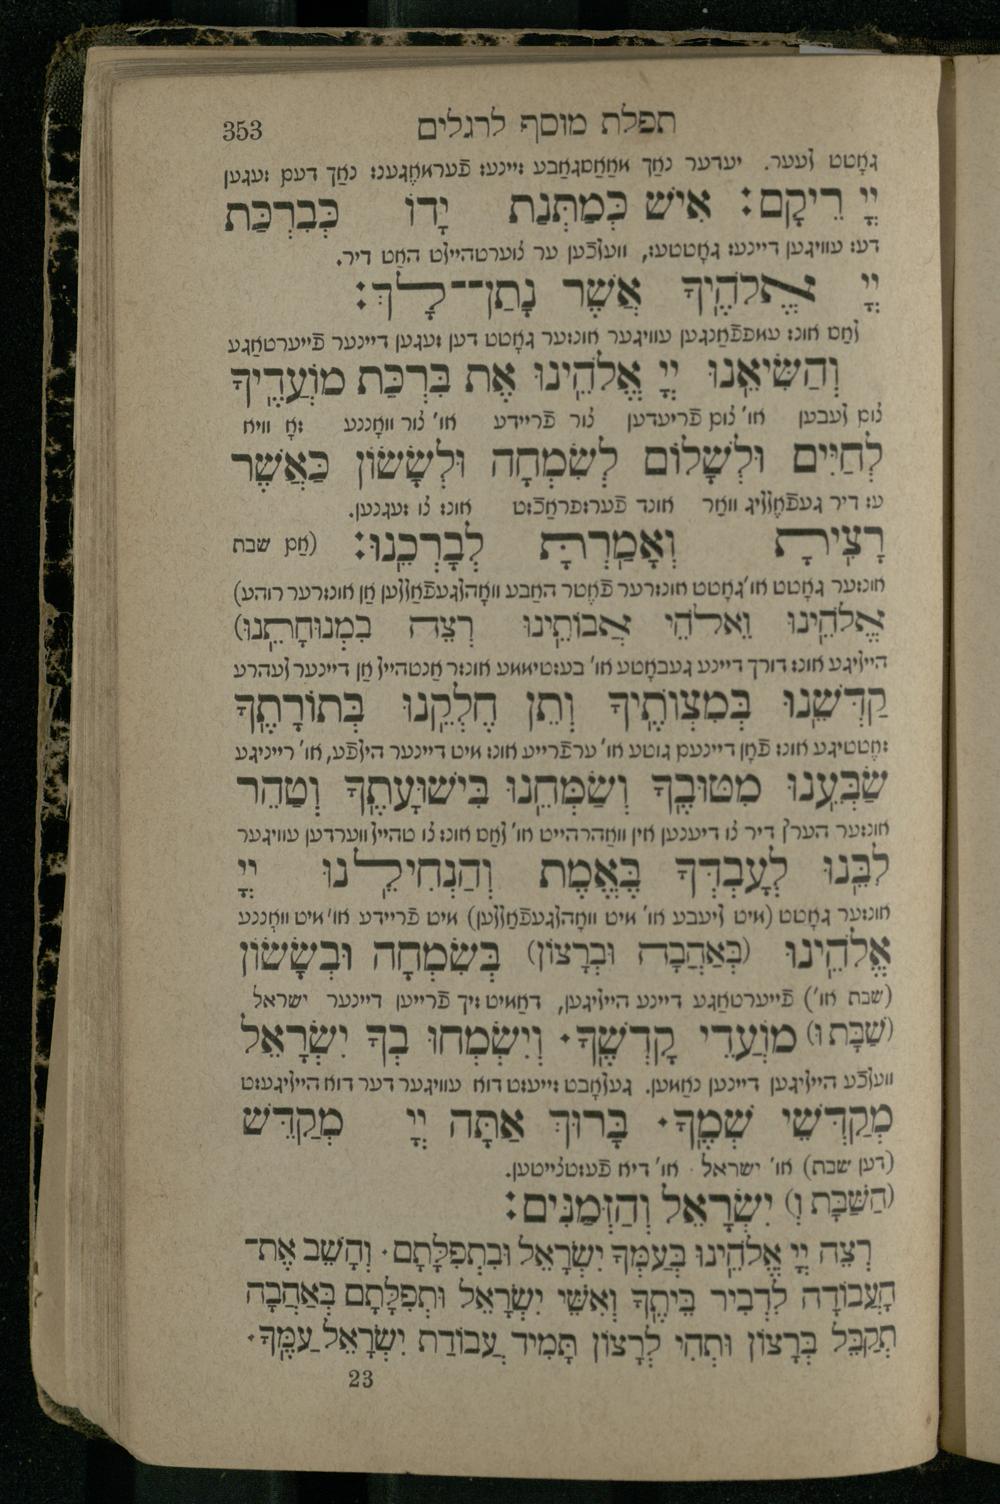 תפלת מוסף לרגלים 353
גאָטט לעער. יעדער נאַך מאַאַסגאַבע זיינעז פֿערמאֶגענז נאַך דעם זעגען
יְיָ רֵיקָם׃ אִישׁ כְּמַתְּנַת יָדוֹ כְּבִרְכַּת
דעז עוויגען דיינעז גאָטטעז, וועלכֿען ער צוערטהיילט האַט דיר.
יְיָ אֱלֹהֶיךָ אֲשֶׁר נָתַן־־לָךְ׃
לאַס אונז עמפּפֿאַנגען עוויגער אונזער גאָטט דען זעגען דיינער פֿייערטאַגע
וְהַשִּׂיאֵנוּ יְיָ אֱלֹהֵינוּ אֶת בִּרְכַּת מוֹעֲדֶיךָ
צום לעבען או' צום פֿריעדען צור פֿריידע או' צור וואָננע זאָ וויא
לְחַיִּים וּלְשָׁלוֹם לְשִׂמְחָה וּלְשָׂשׂוֹן כַּאֲשֶׁר
עז דיר געפֿאֶלליג וואַר אונד פֿערזפראַכֿזט אונז צו זעגנען.
רָצִיתָ וְאָמַרְתָּ לְבָרְכֵנוּ׃ (אַם שבת
אונזער גאָטט או' גאָטט אונזרער פֿאֶטר האַבע וואָהלגעפֿאַללען אַן אונזרער רוהע)
אֱלֹהֵינוּ וֵאלֹהֵי אֲבוֹתֵינוּ רְצֵה בִמְנוּחָתֵנוּ)
היילִיגע אונז דורך דיינע געבאָטע או' בעזטיממע אונזר אַנטהייל אַן דיינער לעהרע
קַדְּשֵׁנוּ בְּמִצְוֹתֶיךָ וְתֵן חֶלְקֵנוּ בְּתוֹרָתֶךָ
זאֶטטיגע אונז פֿאָן דיינעם גוטע או' ערפֿרייע אונז מיט דיינער הילפֿע, או' רייניגע
שַׂבְּעֵנוּ מִטּוּבֶךָ וְשַׂמְּחֵנוּ בִּישׁוּעָתֶךָ וְטַהֵר
אונזער הערץ דיר צו דיענען אין וואַהרהייט או' לאַס אונז צו טהייל ווערדען עוויגער
לִבֵּנוּ לְעָבְדְּךָ בֶּאֱמֶת וְהַנְחִילֵנוּ יְיָ
אונזער גאָטט (מיט ליעבע או' מיט וואָהלגעפֿאַללען) מיט פֿריידע או' מיט וואָננע
אֱלֹהֵינוּ (בְּאַהֲבָה וּבְרָצוֹן) בְּשִׂמְחָה וּבְשָׂשׂוֹן
(שבת או') פֿייערטאַגע דיינע היילִיגען, דאַמיט זיך פֿרייען דיינער ישראל
(שַׁבָּת וּ) מוֹעֲדֵי קָדְשֶׁךָ· וְיִשְׂמְחוּ בְךָ יִשְׂרָאֵל
וועלכֿע היילִיגען דיינען נאַמען. געלאָבט זייעזט דוא עוויגער דער דוא היילִיגעזט
מְקַדְּשֵׁי שְׁמֶךָ· בָּרוּךְ אַתָּה יְיָ מְקַדֵּשׁ
(דען שבת) או' ישראל או' דיא פֿעזטצייטען.
(הַשַּׁבָּת וְ) יִשְׂרָאֵל וְהַזְּמַנִּים׃
רְצֵה יְיָ אֱלֹהֵינוּ בְּעַמְּךָ יִשְׂרָאֵל וּבִתְפִלָּתָם· וְהָשֵׁב אֶת־
הָעֲבוֹדָה לִדְבִיר בֵּיתֶךָ וְאִשֵּׁי יִשְׂרָאֵל וּתְפִלָּתָם בְּאַהֲבָה
תְקַבֵּל בְּרָצוֹן וּתְהִי לְרָצוֹן תָּמִיד עֲבוֹדַת יִשְׂרָאֵל עַמֶּךָ·
23